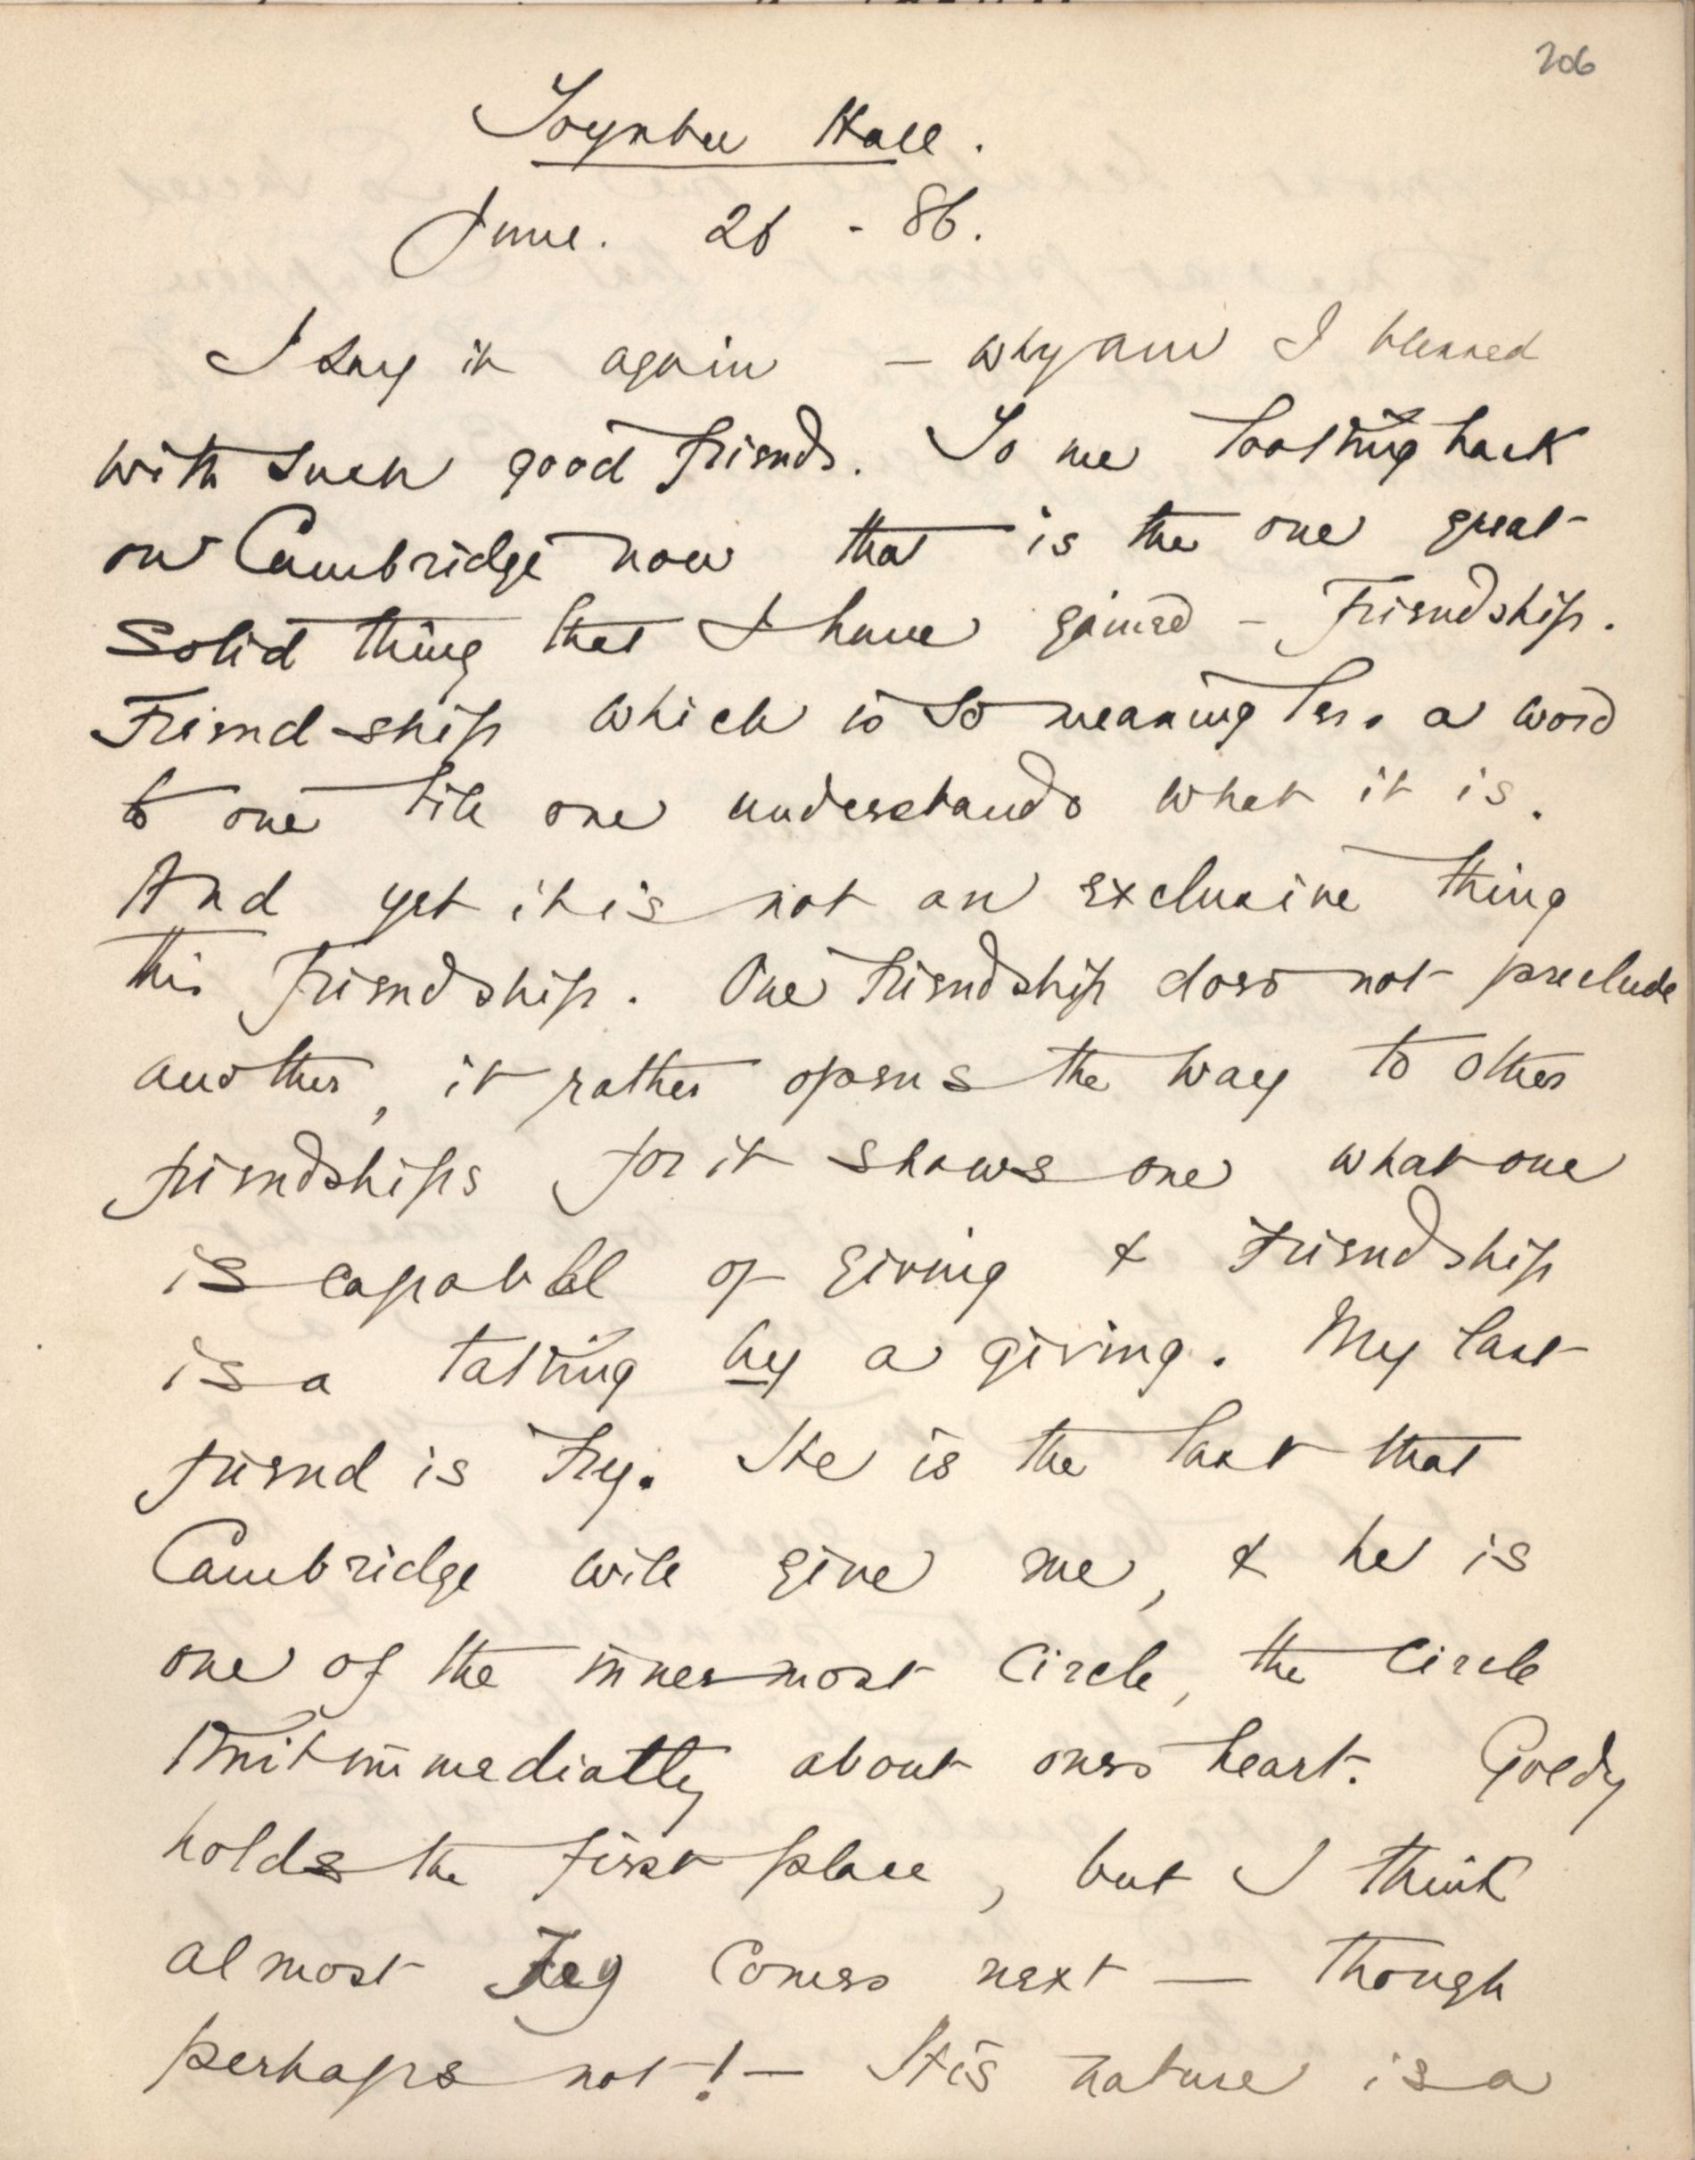 206
Toynbee Hall.
June. 26 - 86.
I say it again — why am I blessed
with such good friends. To me looking back
on Cambridge now that is the one great
solid thing that I have gained - Friendship.
Friend-ship which is so meaningless a word
to one till one understands what it is.
And yet it is not an exclusive thing
this friendship. One friendship does not preclude
another, it rather opens the way to other
friendships for it shows one what one
is capable of giving & friendship
is a taking by a giving. My last
friend is Fry. He is the last that
Cambridge will give me, & he is
one of the innermost circle, the circle
knit immediatly about ones heart. Goldy
holds the first place, but I think
almost Fry comes next — though
perhaps not! — His nature is a